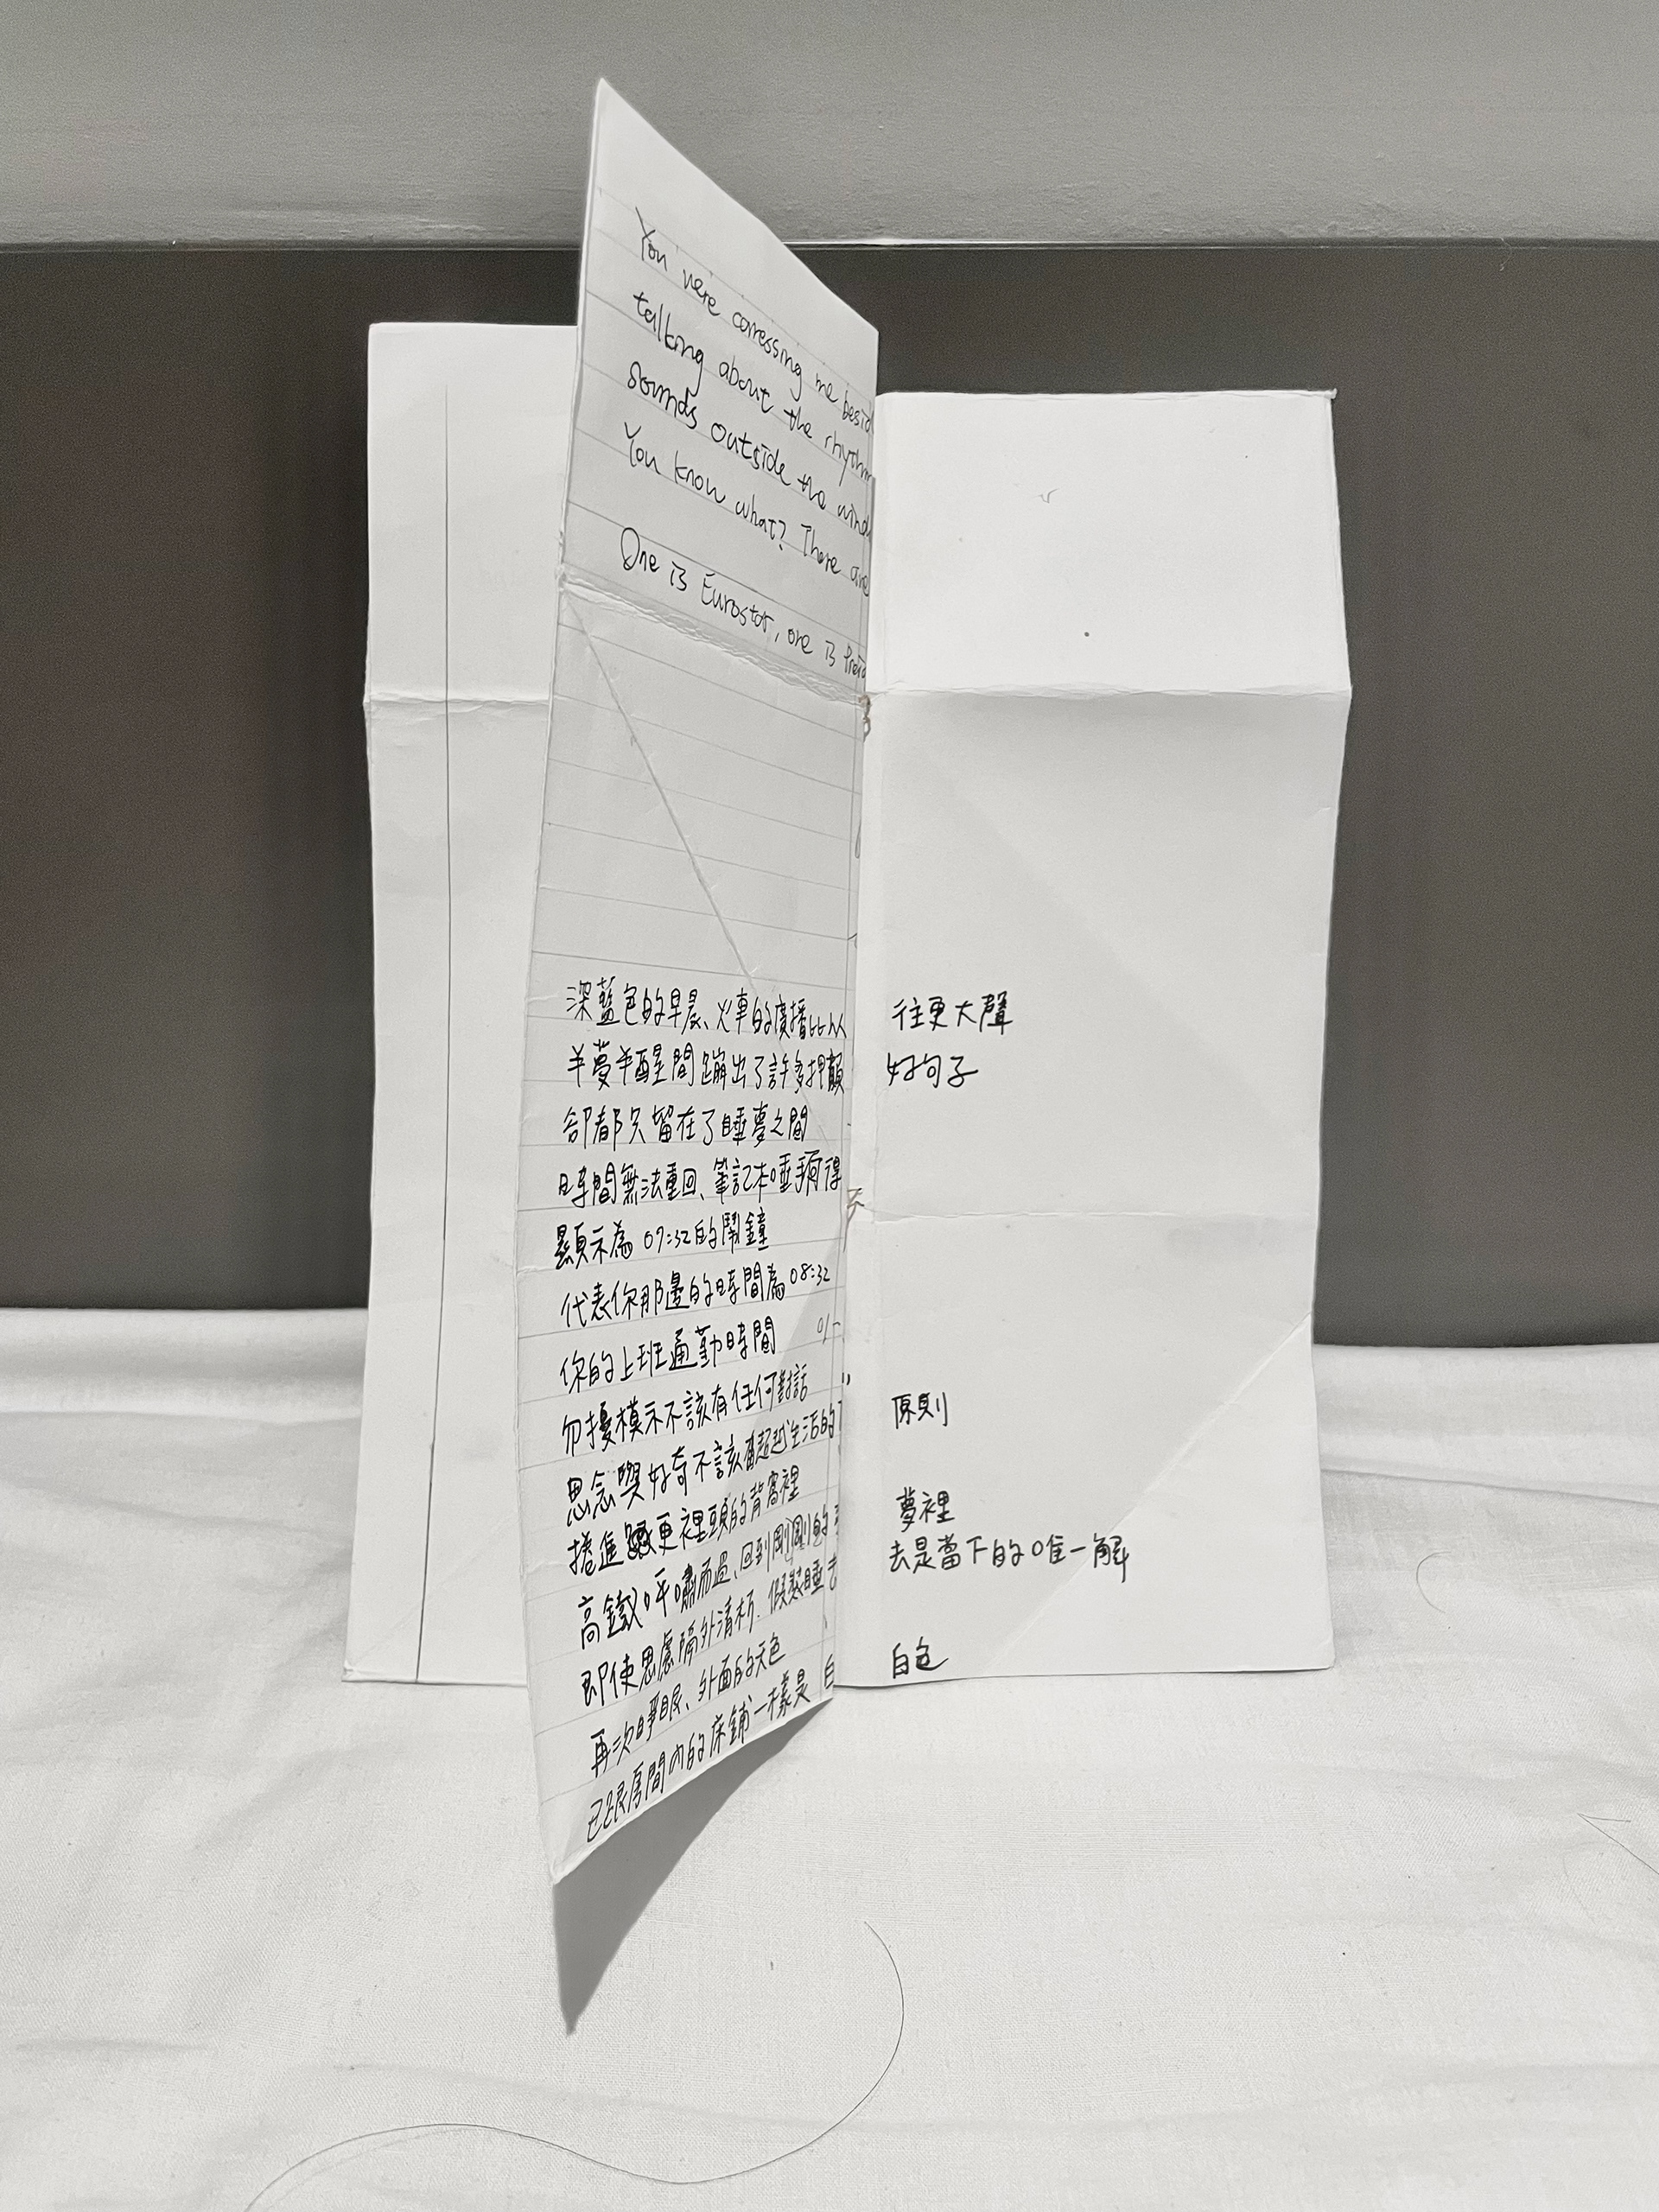 You were carressing me besid
talking about the rhythm
sounds outside the wind
You know what? There are
One is Eurostar, one is
深藍色的早晨、火車的廣播比以往更大聲
半夢半醒間蹦出了許多押韻好句子
卻都只留在了睡夢之間
時間無法重回、筆記本唾手可得
顯示為 07:32的鬧鐘
代表你那邊的時間為08:32
你的上班通勤時間
勿擾模示不該有任何對話
思念與好奇不該超越生活的原則
捲進更裡頭的背窩裡
高鐵呼嘯而過、回到剛剛的夢裡
即使思慮隔外清析、假裝睡去是當下的唯一解
再次睜眼、外面的天色
已跟房間內的床鋪一樣是 白色